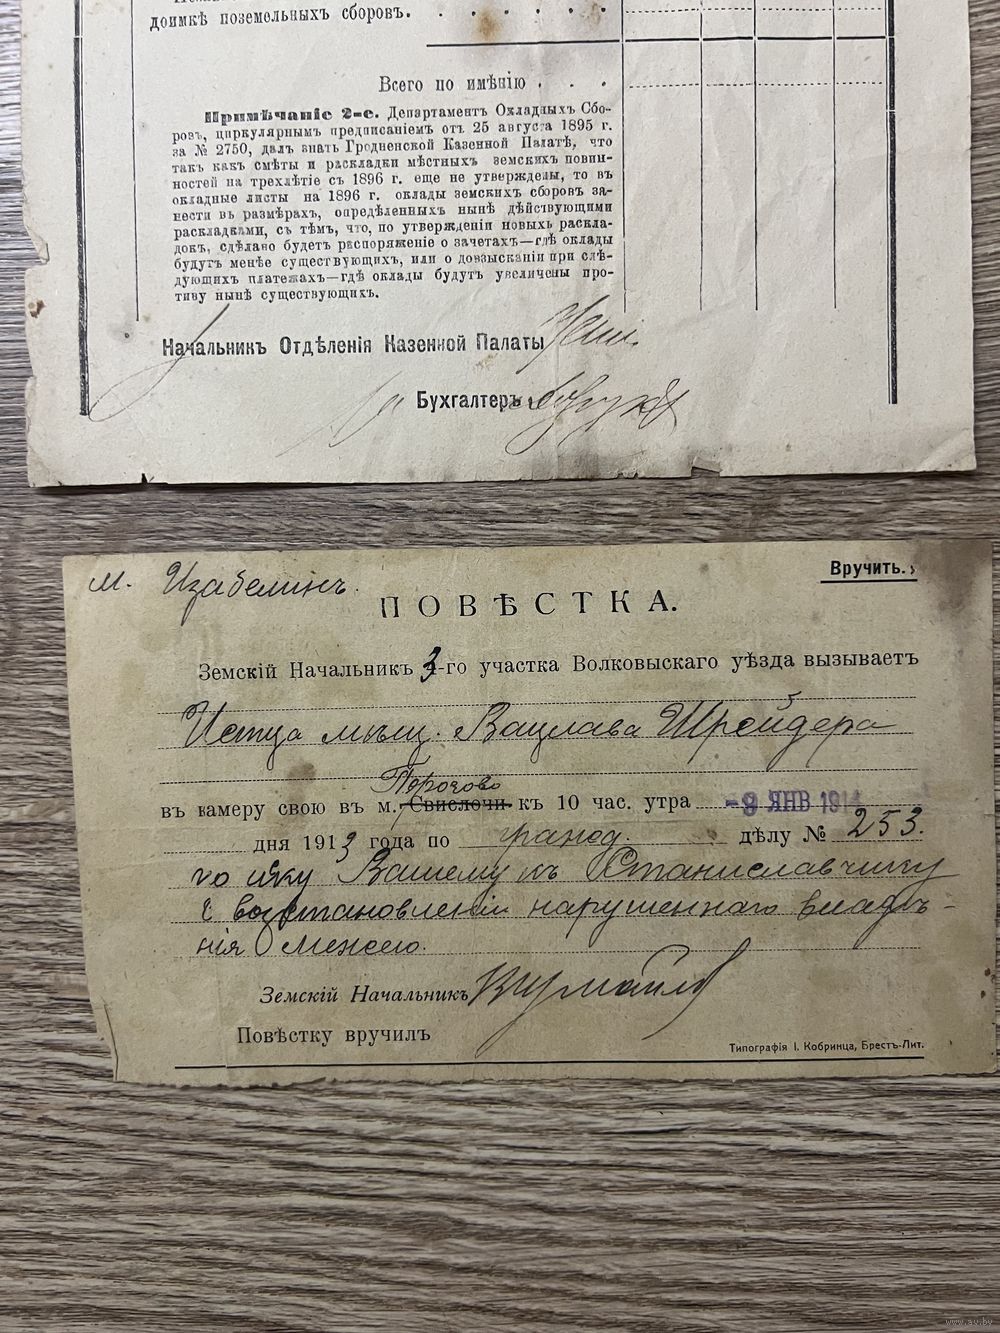 доимкѣ поземельныхъ сборовъ. . . . . . .
Всего по имѣнію . . .
Примѣчаніе 2-е. Департаментъ Окладныхъ Сбо-
ровъ, циркулярнымъ предписаніемъ отъ 25 августа 1895 г.
за № 2750, далъ знать Гродненской Казенной Палатѣ, что
такъ какъ смѣты и раскладки мѣстныхъ земскихъ повин-
ностей на трехлѣтіе съ 1896 г. еще не утверждены, то въ
окладные листы на 1896 г. оклады земскихъ сборовъ за-
нести въ размѣрахъ, опредѣленныхъ нынѣ дѣйствующими
раскладками, съ тѣмъ, что, по утвержденіи новыхъ раскла-
докъ, сдѣлано будетъ распоряженіе о зачетахъ—гдѣ оклады
будутъ менѣе существующихъ, или о довзысканіи при слѣ-
дующихъ платежахъ—гдѣ оклады будутъ увеличены про-
тиву нынѣ существующихъ.
Начальникъ Отдѣленія Казенной Палаты
Бухгалтеръ
м. Изабелинъ.
Вручить.
ПОВѢСТКА.
Земскій Начальникъ 3-го участка Волковыскаго уѣзда вызываетъ
Истца мѣщ. Вацлава Шрейдера
Порозово
въ камеру свою въ м. Свислочи къ 10 час. утра -9 ЯНВ 1914
дня 1913 года по гражд. дѣлу № 253.
по иску Вашему къ Станиславчику
о возстановленіи нарушеннаго владѣ-
нія межею.
Земскій Начальникъ
Повѣстку вручилъ
Типографія І. Кобринца, Брестъ-Лит.
www.ay.by